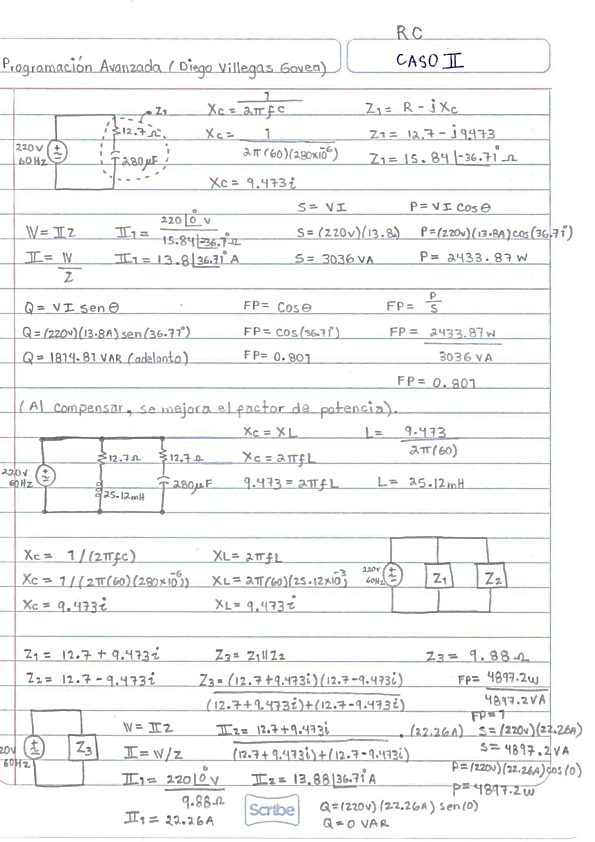 RC
CASO II
Programación Avanzada (Diego Villegas Govea)
Z1
12.7Ω
280μF
220V
60Hz
Xc = 1 / 2πfC
Xc = 1 / 2π(60)(280x10^-6)
Xc = 9.473i
Z1 = R - jXc
Z1 = 12.7 - j9.473
Z1 = 15.84 |-36.71° Ω
V = IZ
I = V / Z
I1 = 220|0° V / 15.84|-36.7° Ω
I1 = 13.8|36.71° A
S = VI
S = (220V)(13.8)
S = 3036 VA
P = VI cos θ
P = (220V)(13.8A)cos(36.71°)
P = 2433.87 W
Q = VI sen θ
Q = (220V)(13.8A) sen(36.71°)
Q = 1814.81 VAR (adelanto)
FP = Cos θ
FP = cos(36.71°)
FP = 0.801
FP = P / S
FP = 2433.87w / 3036 VA
FP = 0.801
(Al compensar, se mejora el factor de potencia).
220V
60Hz
12.7Ω
25.12mH
12.7Ω
280μF
Xc = XL
Xc = 2πfL
9.473 = 2πfL
L = 9.473 / 2π(60)
L = 25.12mH
Xc = 1/(2πfC)
Xc = 1/(2π(60)(280x10^-6))
Xc = 9.473i
XL = 2πfL
XL = 2π(60)(25.12x10^-3)
XL = 9.473i
220V
60Hz
Z1
Z2
Z1 = 12.7 + 9.473i
Z2 = 12.7 - 9.473i
Z3 = Z1||Z2
Z3 = (12.7+9.473i)(12.7-9.473i) / (12.7+9.473i)+(12.7-9.473i)
Z3 = 9.88 Ω
FP = 4897.2w / 4897.2VA
FP = 1
20V
0Hz
Z3
V = IZ
I = V/Z
I1 = 220|0° V / 9.88Ω
I1 = 22.26A
I2 = 12.7+9.473i / (12.7+9.473i)+(12.7-9.473i) . (22.26A)
I2 = 13.88|36.71° A
S = (220V)(22.26A)
S = 4897.2 VA
P = (220V)(22.26A)cos(0)
P = 4897.2 W
Q = (220V)(22.26A) sen(0)
Q = 0 VAR
Scribe